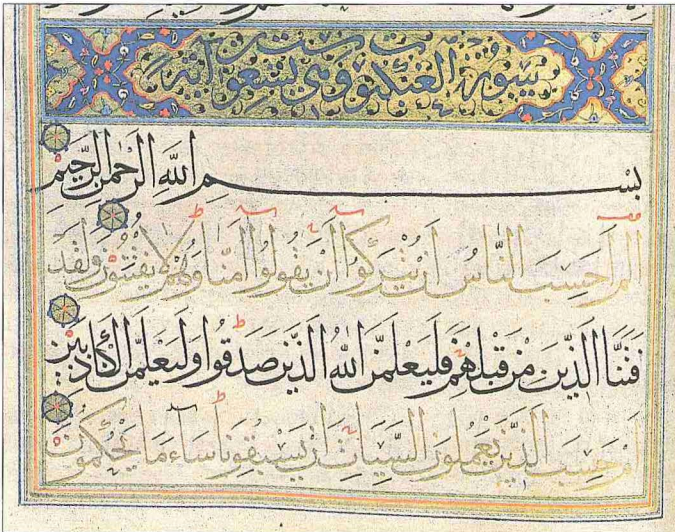 سورة العنكبوت وهي تسع وستون آية
بِسْمِ اللهِ الرَّحْمٰنِ الرَّحِيمِ
الم اَحَسِبَ النَّاسُ اَنْ يُتْرَكُوا اَنْ يَقُولُوا اٰمَنَّا وَهُمْ لَا يُفْتَنُونَ وَلَقَدْ
فَتَنَّا الَّذِينَ مِنْ قَبْلِهِمْ فَلَيَعْلَمَنَّ اللهُ الَّذِينَ صَدَقُوا وَلَيَعْلَمَنَّ الْكَاذِبِينَ
اَمْ حَسِبَ الَّذِينَ يَعْمَلُونَ السَّيِّاٰتِ اَنْ يَسْبِقُونَا سَاءَ مَا يَحْكُمُونَ